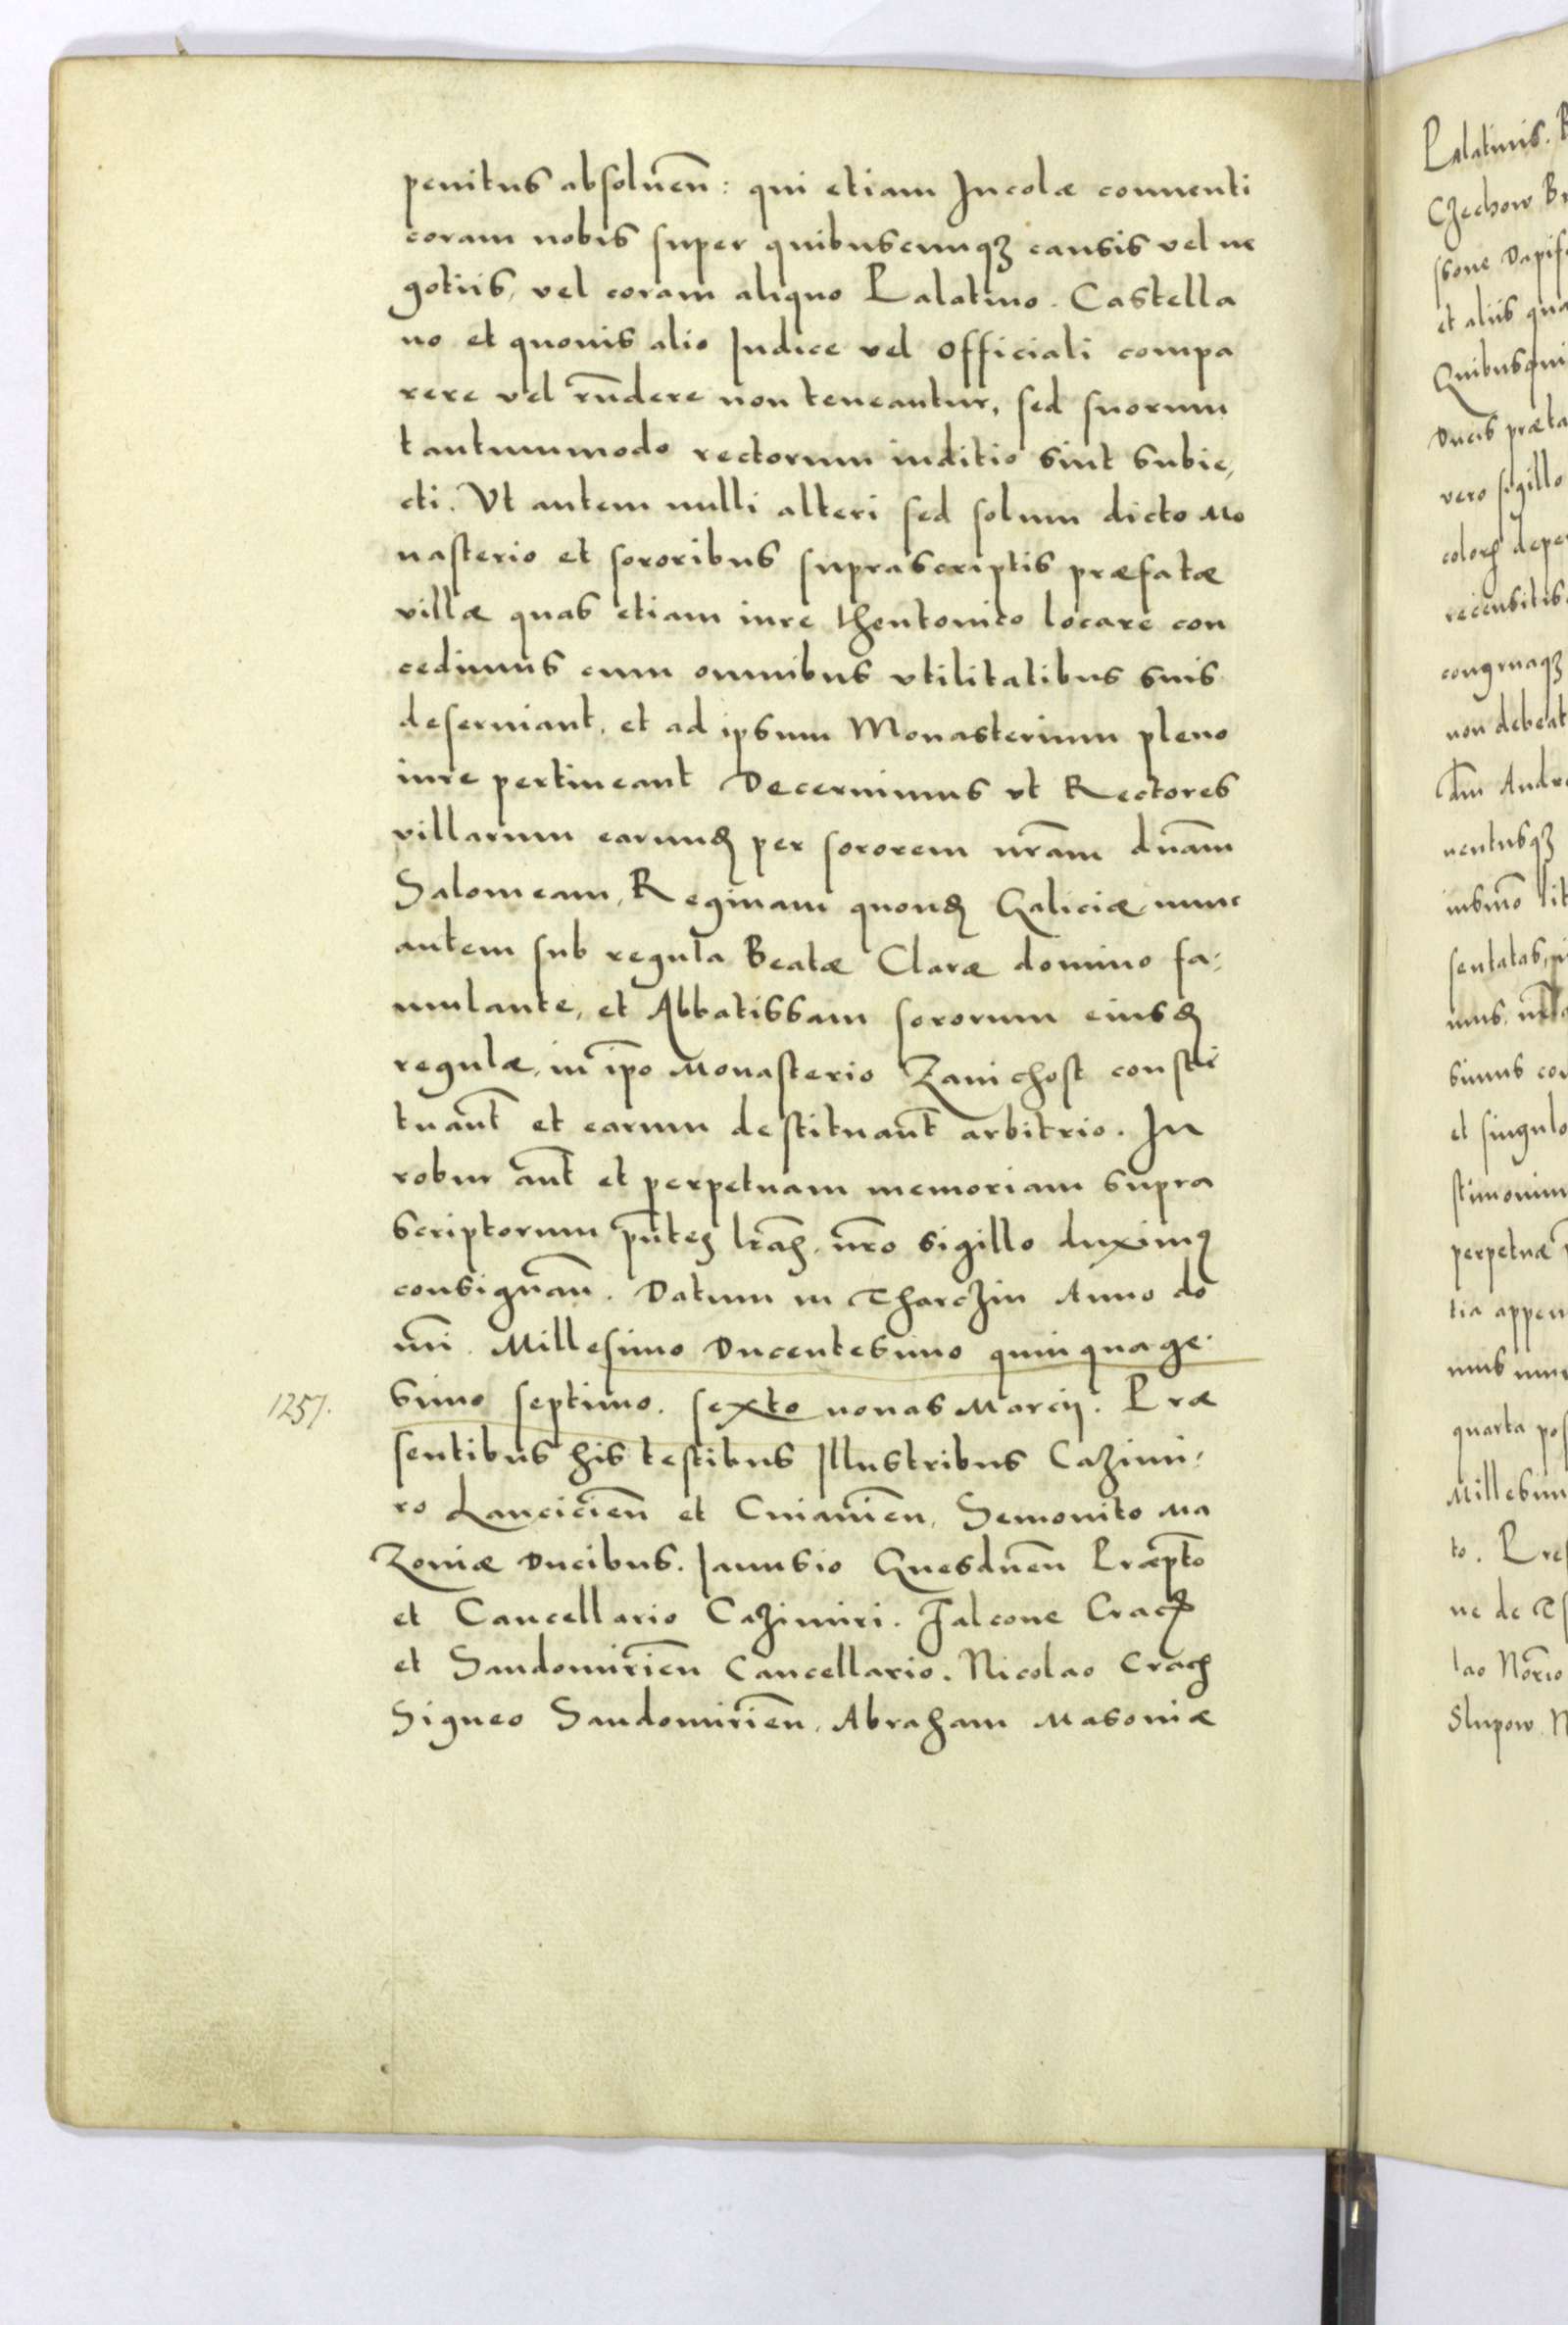 penitus absoluen̄: qui etiam Incolæ conuenti
coram nobis super quibuscunqꝫ causis vel ne
gotiis, vel coram aliquo Palatino. Castella
no et quouis alio Iudice vel officiali compa
rere vel rn̄dere non teneantur, sed suorum
tantummodo rectorum iuditio sint subie,
cti. Vt autem nulli alteri sed solum dicto Mo
nasterio et sororibus suprascriptis præfatæ
villæ quas etiam iure thentonico locare con
cedimus cum omnibus vtilitatibus suis
deseruiant, et ad ipsum Monasterium pleno
iure pertineant Decernimus vt Rectores
villarum earunđ per sororem nr̄am dn̄am
Salomeam, Reginam quonđ Galiciæ nunc
autem sub regula Beatæ Claræ domino fa:
mulante, et Abbatissam sororum eiusđ
regulæ, in ip̄o Monasterio Zauichost consti
tuant̄ et earum destituant̄ arbitrio. In
robur aut̄ et perpetuam memoriam supra
scriptorum pn̄teꝫ lr̄aꝫ, nr̄o sigillo duximꝰ
consignan̄. Datum in TharcZin Anno do
mi. Millesimo Ducentesimo quinquage
1257.
simo septimo. sexto nonas Marcij. Præ
sentibus his testibus Illustribus CaZimi,
ro Lancicien̄ et Cuiauien̄, Semouito Ma
Zouiæ Ducibus. Ianusio Gnesdnen̄ Præpt̄o
et Cancellario CaZimiri. Falcone Cracꝫ
et Sandomirien̄ Cancellario. Nicolao Cracꝫ
Signeo Sandomirien̄, Abraham Masouiæ
Palatinis.
CZechow
ssone
et aliis
Ducis
vero sigillo
recensitis
congruaqꝫ
non debeat
uentusqꝫ
et singulo
perpetuæ
tia
quarta
to.
ne de
lao
Slupow.